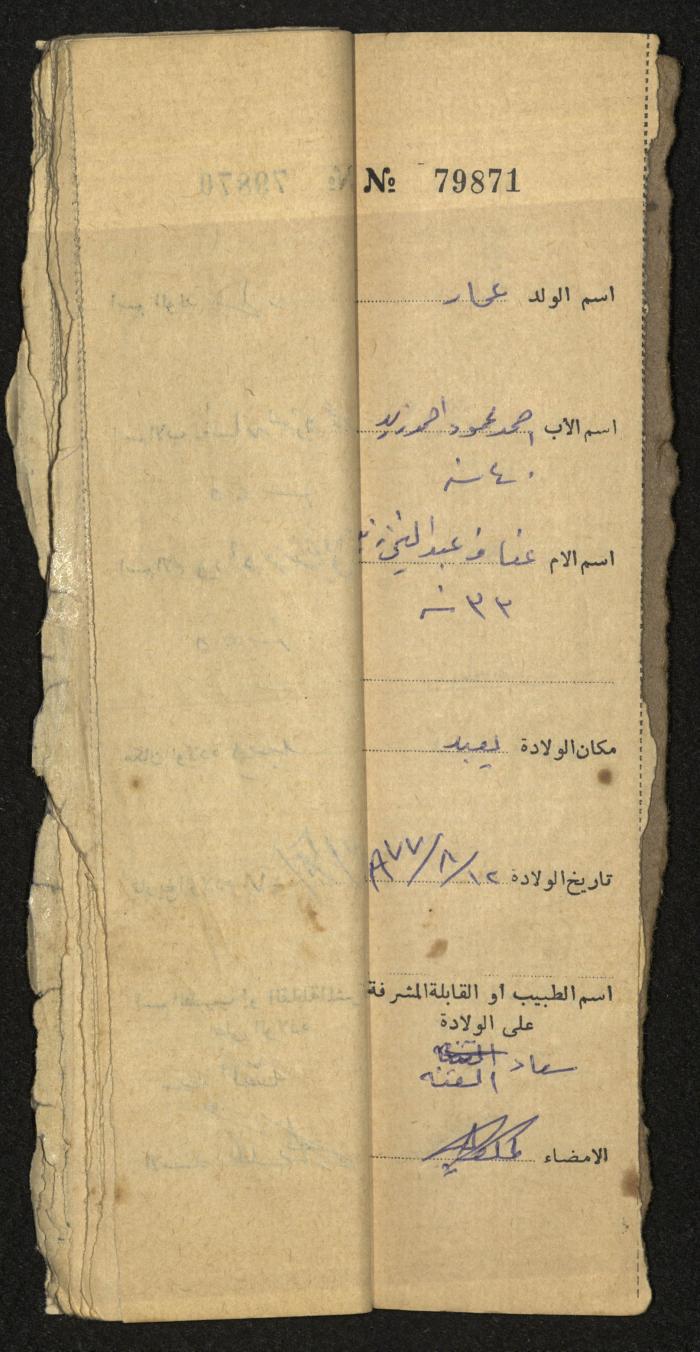 № 79871
اسم الولد عمار
اسم الأب احمد محمود احمد زيد
٤٠ سنه
اسم الام عفاف عبد الغني زيد
٣٣ سنه
مكان الولادة يعبد
تاريخ الولادة ١٢/٨/٩٧٧
اسم الطبيب او القابلة المشرفة
على الولادة
سعاد
الامضاء